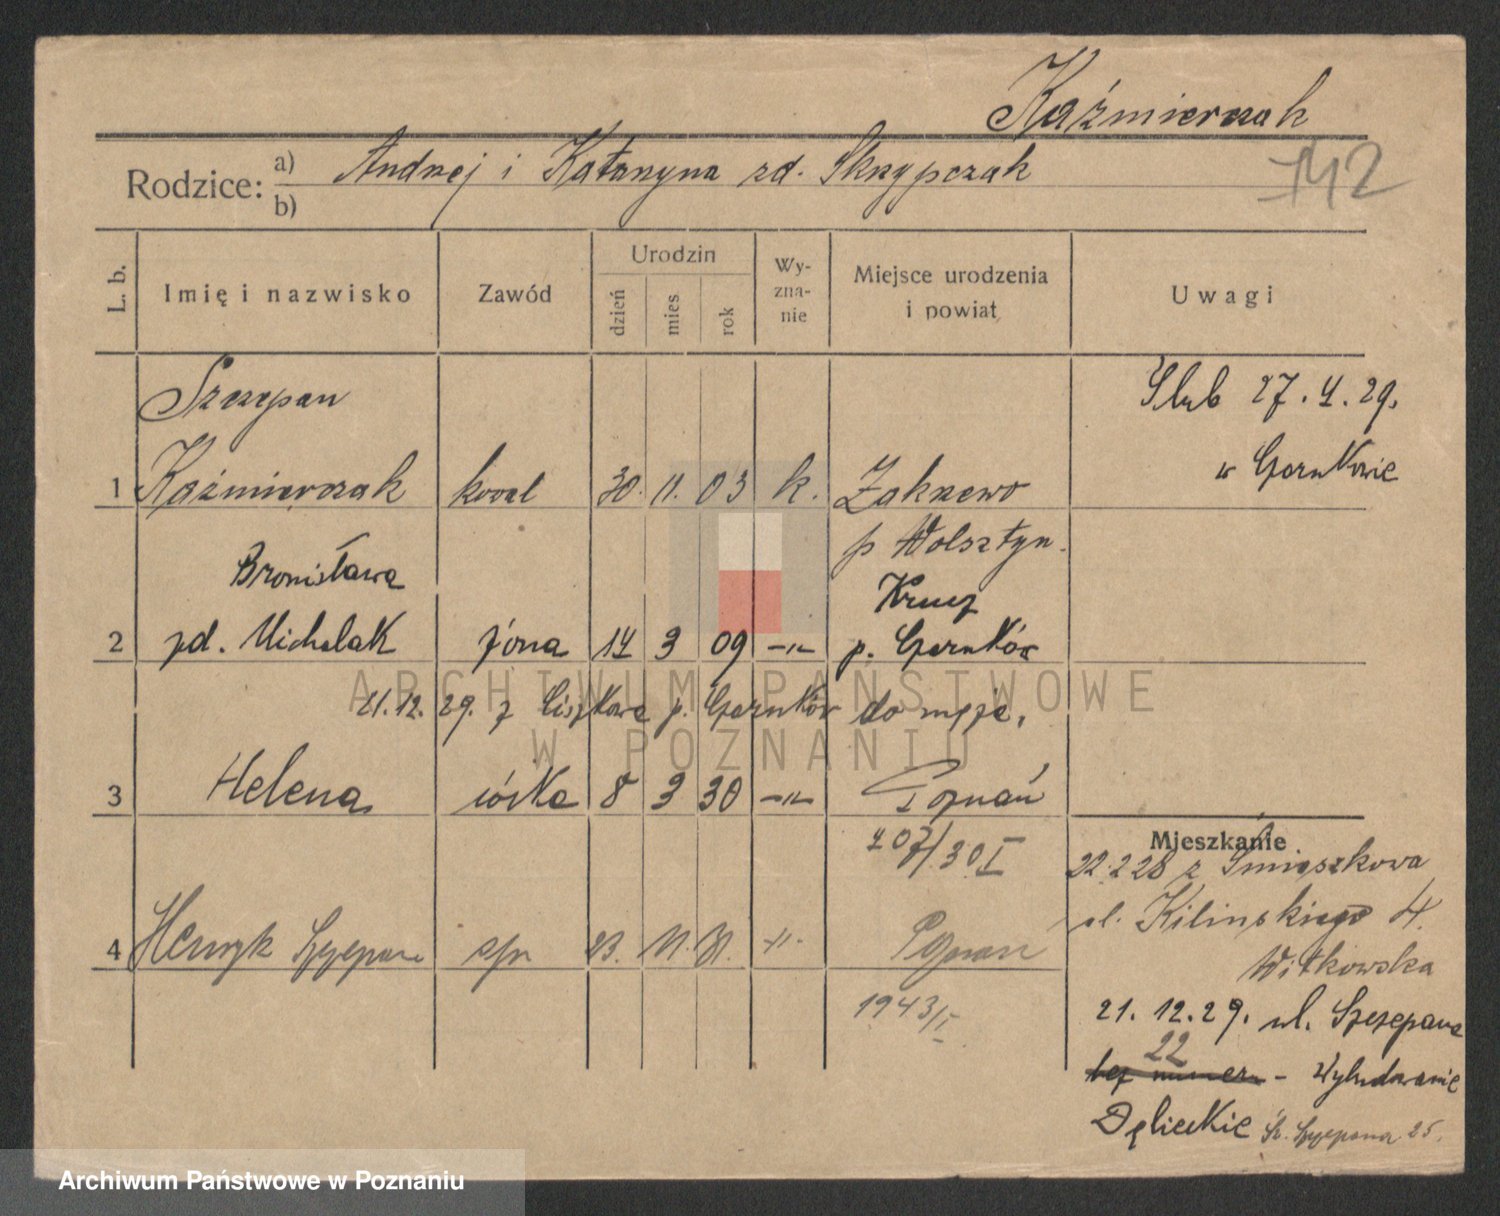 Kaźmierczak
Rodzice: a) Andrzej i Katarzyna zd. Skrzypczak
b)
142
L. b. Imię i nazwisko Zawód Urodzin dzień mies rok Wyznanie Miejsce urodzenia i powiat Uwagi
Szczepan
Ślub 27.4.29.
w Czarnkowie
1 Kaźmierczak kowal 30. 11. 03 k. Zakrzewo
p Wolsztyn.
Bronisława Krucz
2 zd. Michalak żona 14 3 09 -"- p. Czarnków
21.12.29. z Ciszkowa p. Czarnków do męża.
3 Helena córka 8 3 30 -"- Poznań
207/30 I
4 Henryk Szczepan syn 23. 11. 31. -"- Poznań
1943/I
Mieszkanie
22.2.28 z Śmieszkowa
ul. Kilińskiego 4.
Witkowska
21.12.29. ul. Szczepana
22
bez numeru - Wybudowanie
Dębieckie Św. Szczepana 25.
ARCHIWUM PAŃSTWOWE
W POZNANIU
Archiwum Państwowe w Poznaniu